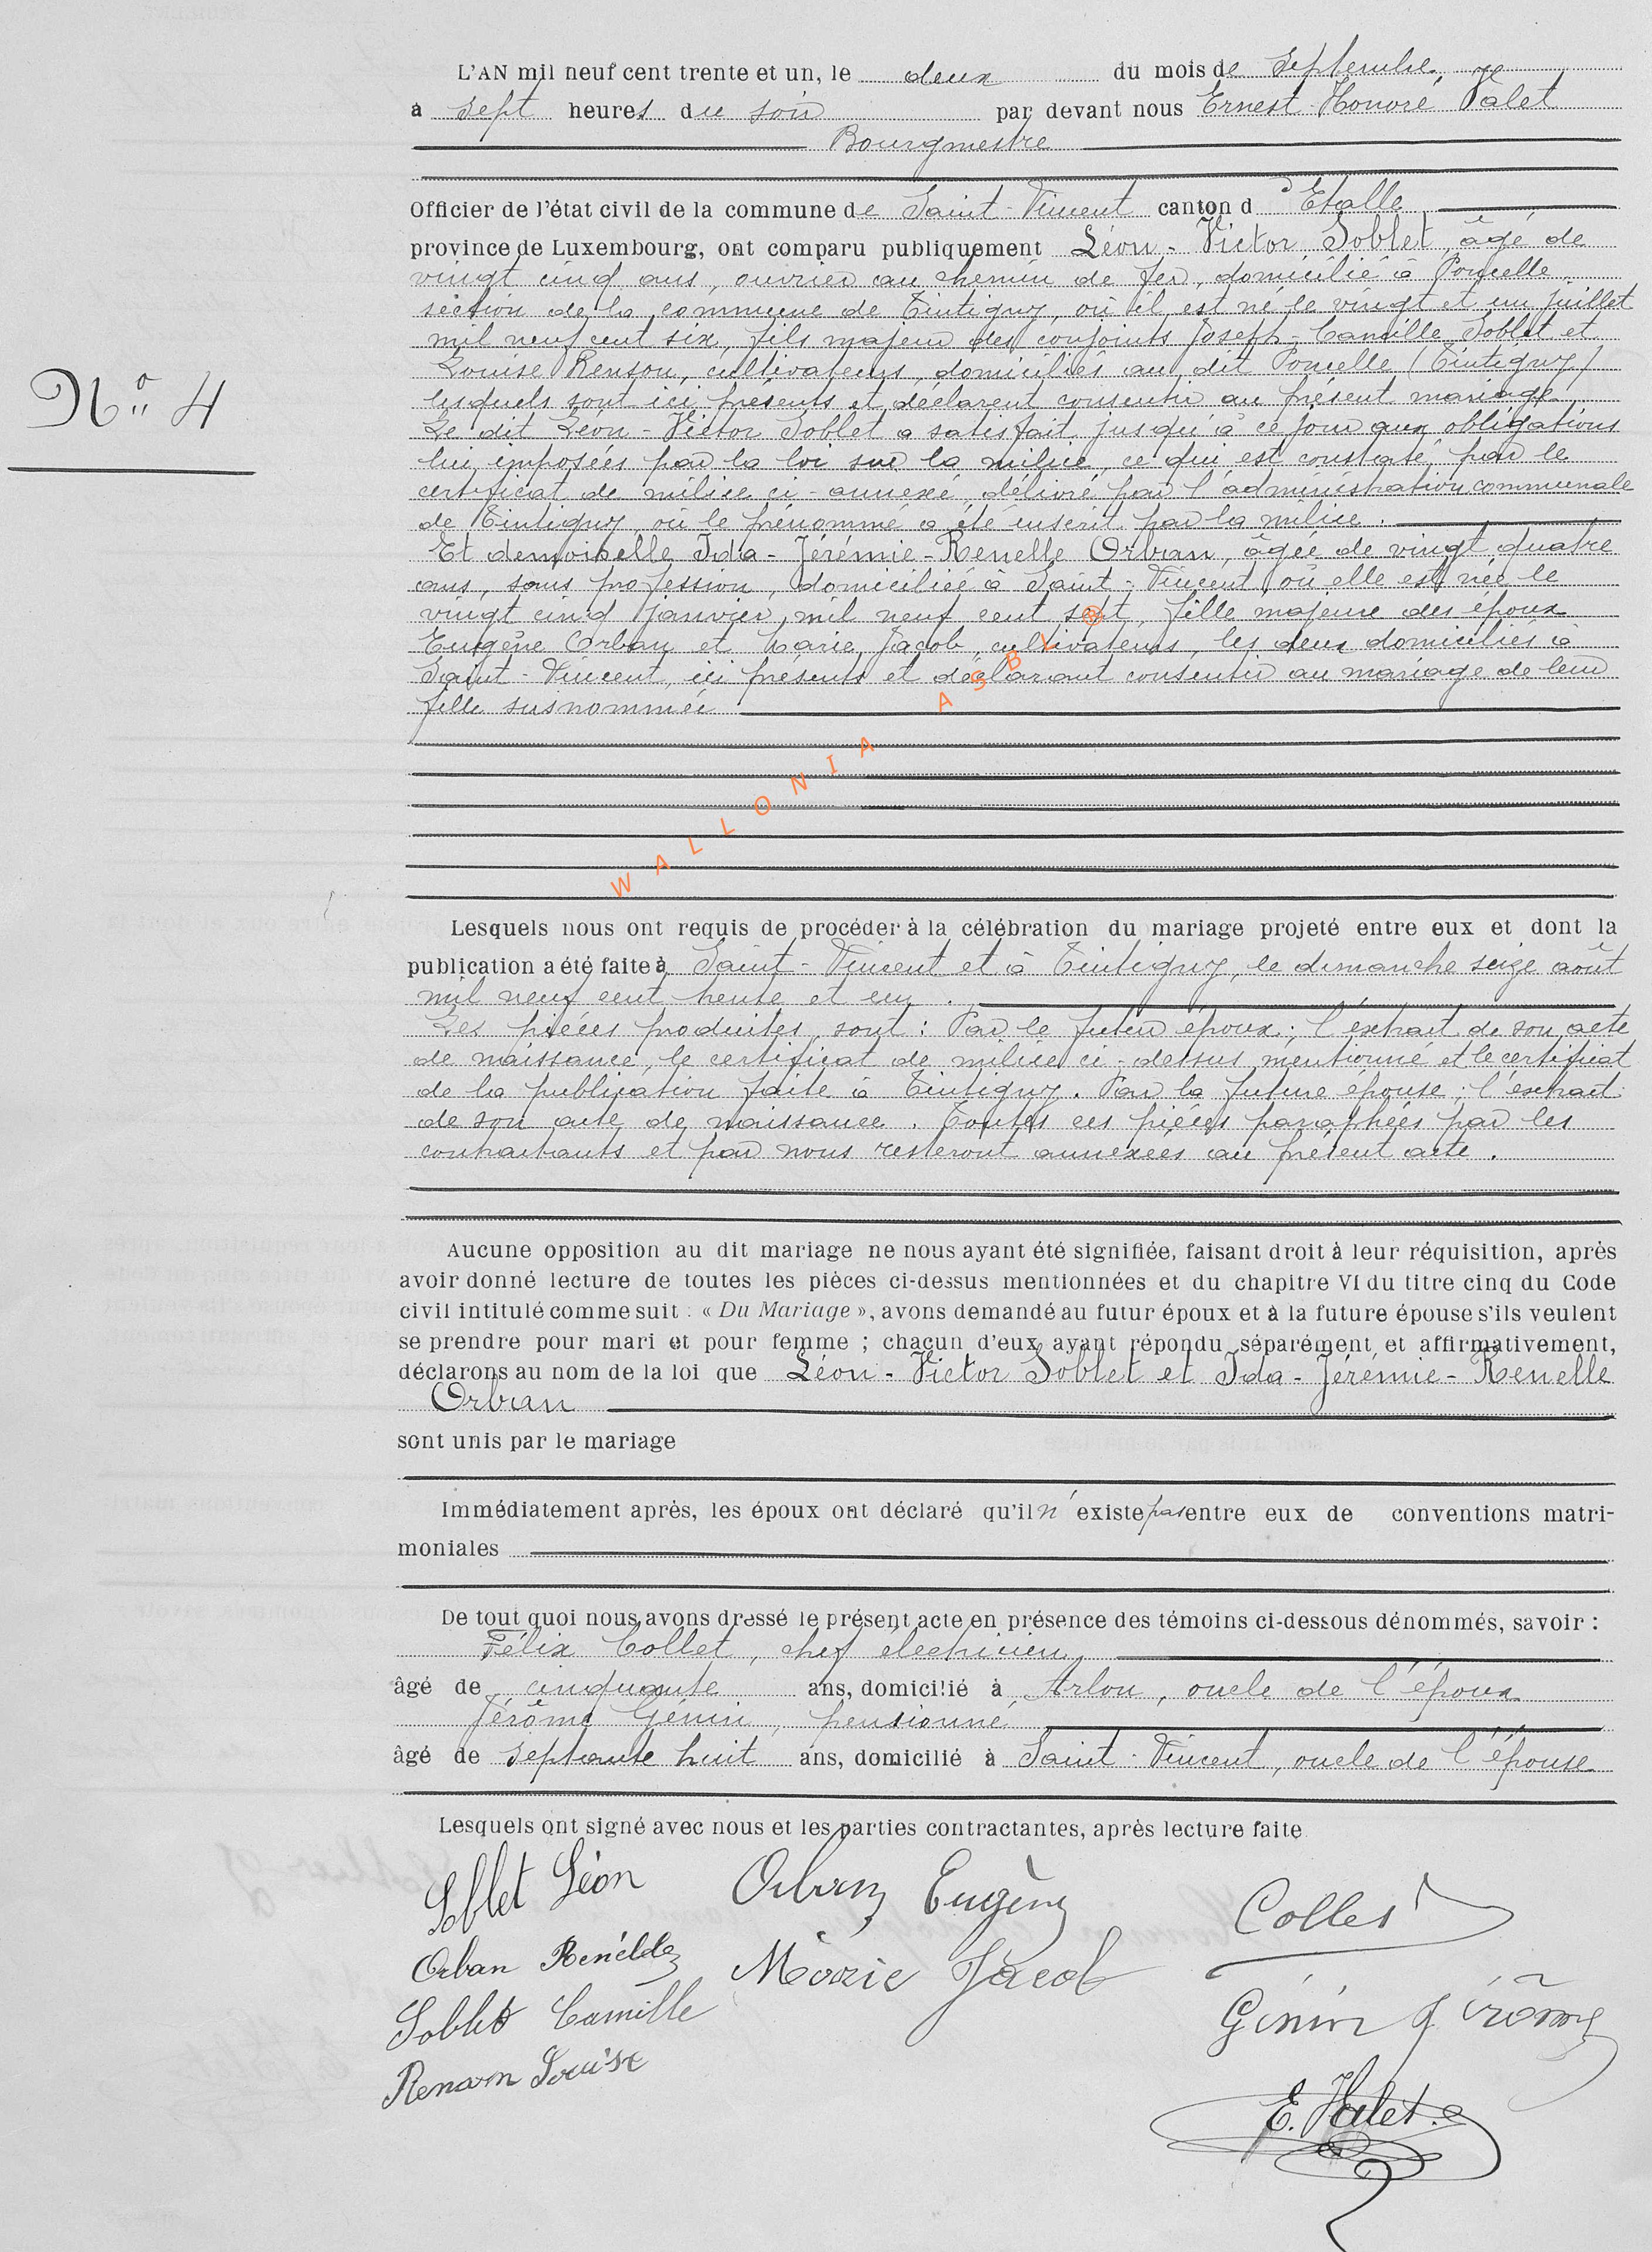 L'AN mil neuf cent trente et un, le deux du mois de Septembre
à sept heures du soir par devant nous Ernest Honoré Valet
Bourgmestre
Officier de l'état civil de la commune de Saint-Vincent canton d'Etalle
province de Luxembourg, ont comparu publiquement Léon-Victor Soblet, âgé de
vingt cinq ans, ouvrier au chemin de fer, domicilié à Poncelle,
section de la commune de Tintigny, où il est né le vingt et un juillet
N° 4
mil neuf cent six, fils majeur des conjoints Joseph-Camille Soblet et
Louise Renson, cultivateurs, domiciliés au dit Poncelle (Tintigny)
lesquels sont ici présents et déclarent consentir au présent mariage.
Le dit Léon-Victor Soblet a satisfait jusqu'à ce jour aux obligations
lui imposées par la loi sur la milice, ce qui est constaté par le
certificat de milice ci-annexé, délivré par l'administration communale
de Tintigny où le prénommé a été inscrit par la milice.
Et demoiselle Ida-Jérémie-Renelle Orban, âgée de vingt quatre
ans, sans profession, domiciliée à Saint-Vincent où elle est née le
vingt cinq janvier mil neuf cent sept, fille majeure des époux
Eugène Orban et Marie Jacob, cultivateurs, les deux domiciliés à
Saint-Vincent, ici présents et déclarant consentir au mariage de leur
fille susnommée
WALLONIA ASBL ®
Lesquels nous ont requis de procéder à la célébration du mariage projeté entre eux et dont la
publication a été faite à Saint-Vincent et à Tintigny, le dimanche seize août
mil neuf cent trente et un.
Les pièces produites, sont : Par le futur époux ; l'extrait de son acte
de naissance, le certificat de milice ci-dessus mentionné et le certificat
de la publication faite à Tintigny. Par la future épouse ; l'extrait
de son acte de naissance. Toutes ces pièces paraphées par les
contractants et par nous resteront annexées au présent acte.
Aucune opposition au dit mariage ne nous ayant été signifiée, faisant droit à leur réquisition, après
avoir donné lecture de toutes les pièces ci-dessus mentionnées et du chapitre VI du titre cinq du Code
civil intitulé comme suit : « Du Mariage », avons demandé au futur époux et à la future épouse s'ils veulent
se prendre pour mari et pour femme ; chacun d'eux ayant répondu séparément et affirmativement,
déclarons au nom de la loi que Léon-Victor Soblet et Ida-Jérémie-Renelle
Orban
sont unis par le mariage
Immédiatement après, les époux ont déclaré qu'il n'existe pas entre eux de conventions matri-
moniales
De tout quoi nous avons dressé le présent acte en présence des témoins ci-dessous dénommés, savoir :
Félix Collet, chef électricien,
âgé de cinquante ans, domicilié à Arlon, oncle de l'époux
Jérôme Génin, pensionné
âgé de septante huit ans, domicilié à Saint-Vincent, oncle de l'épouse
Lesquels ont signé avec nous et les parties contractantes, après lecture faite
Soblet Léon
Orban Eugène
Collet
Orban Renelde
Marie Jacob
Soblet Camille
Génin Jérôme
Renson Louise
E. Valet